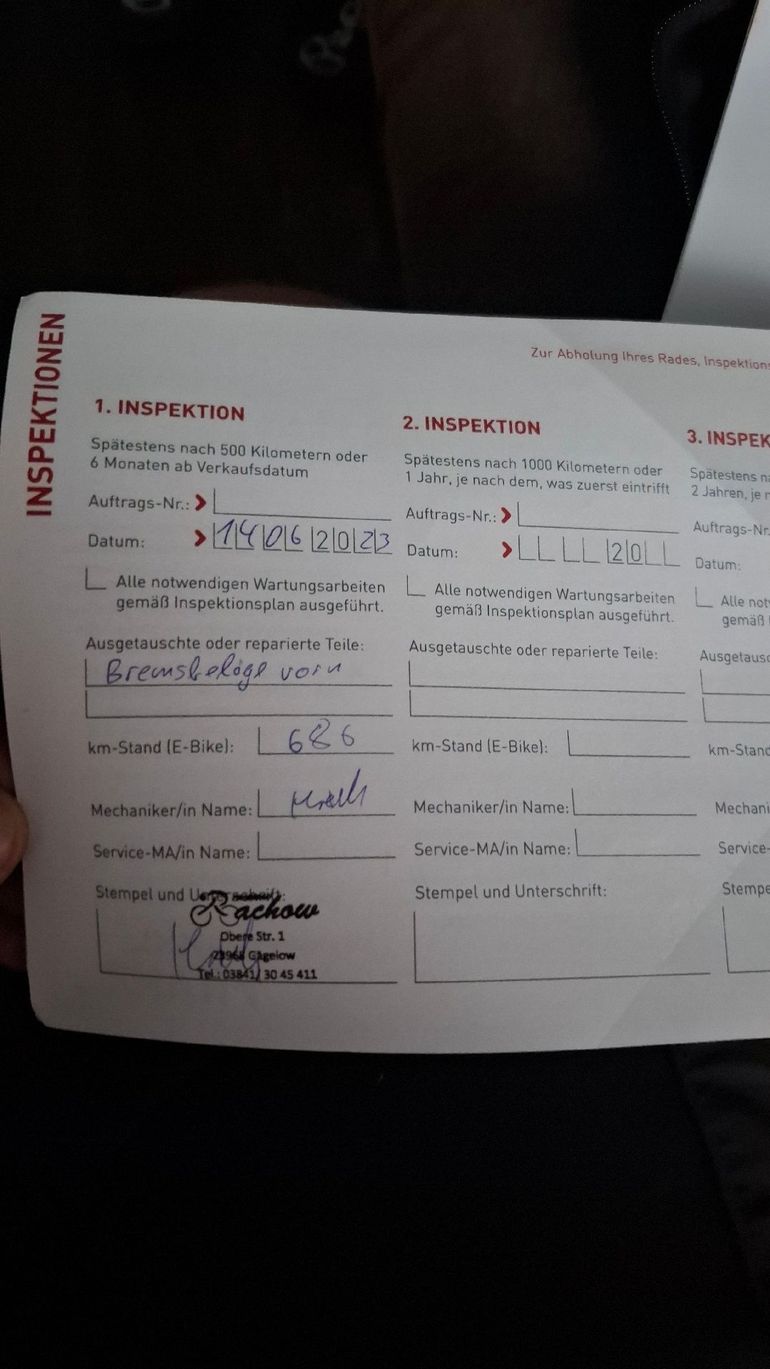 INSPEKTIONEN
Zur Abholung Ihres Rades, Inspektions
1. INSPEKTION
Spätestens nach 500 Kilometern oder
6 Monaten ab Verkaufsdatum
Auftrags-Nr.:
Datum: 14062023
Alle notwendigen Wartungsarbeiten
gemäß Inspektionsplan ausgeführt.
Ausgetauschte oder reparierte Teile:
Bremsbeläge vorn
km-Stand (E-Bike): 686
Mechaniker/in Name:
Service-MA/in Name:
Stempel und Unterschrift:
Rachow
Obere Str. 1
23968 Gägelow
Tel.: 03841/ 30 45 411
2. INSPEKTION
Spätestens nach 1000 Kilometern oder
1 Jahr, je nach dem, was zuerst eintrifft
Auftrags-Nr.:
Datum: 20
Alle notwendigen Wartungsarbeiten
gemäß Inspektionsplan ausgeführt.
Ausgetauschte oder reparierte Teile:
km-Stand (E-Bike):
Mechaniker/in Name:
Service-MA/in Name:
Stempel und Unterschrift:
3. INSPEK
Spätestens na
2 Jahren, je n
Auftrags-Nr.
Datum:
Alle not
gemäß
Ausgetausc
km-Stand
Mechani
Service-
Stempe